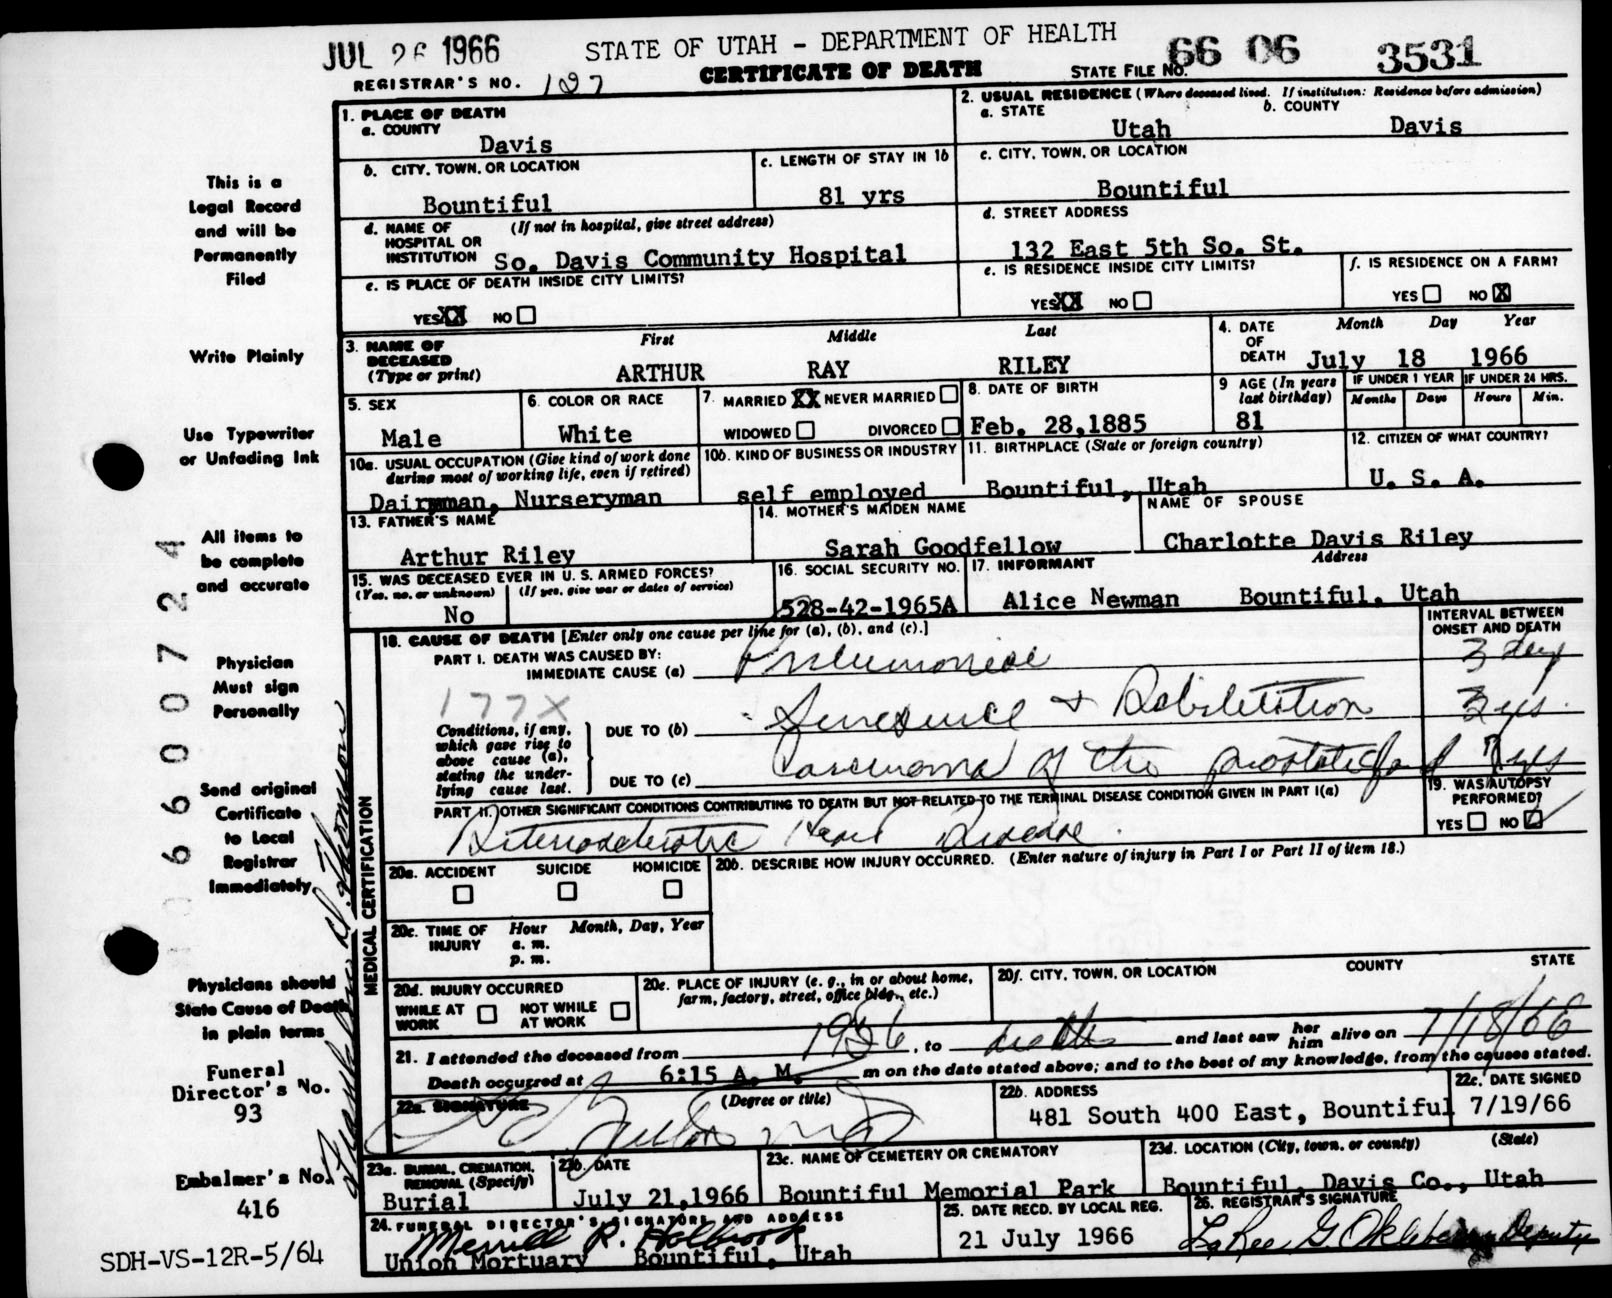 JUL 26 1966
STATE OF UTAH - DEPARTMENT OF HEALTH
CERTIFICATE OF DEATH
REGISTRAR'S NO. 127
STATE FILE NO. 66 06 3531
1. PLACE OF DEATH
a. COUNTY
Davis
2. USUAL RESIDENCE (Where deceased lived. If institution: Residence before admission)
a. STATE
Utah
b. COUNTY
Davis
b. CITY, TOWN, OR LOCATION
Bountiful
c. LENGTH OF STAY IN 1b
81 yrs
c. CITY, TOWN, OR LOCATION
Bountiful
d. NAME OF HOSPITAL OR INSTITUTION (If not in hospital, give street address)
So. Davis Community Hospital
d. STREET ADDRESS
132 East 5th So. St.
e. IS PLACE OF DEATH INSIDE CITY LIMITS?
YES XX NO
e. IS RESIDENCE INSIDE CITY LIMITS?
YES XX NO
f. IS RESIDENCE ON A FARM?
YES NO X
3. NAME OF DECEASED (Type or print)
First Middle Last
ARTHUR RAY RILEY
4. DATE OF DEATH
Month Day Year
July 18 1966
5. SEX
Male
6. COLOR OR RACE
White
7. MARRIED XX NEVER MARRIED
WIDOWED DIVORCED
8. DATE OF BIRTH
Feb. 28,1885
9 AGE (In years last birthday)
81
IF UNDER 1 YEAR
Months Days
IF UNDER 24 HRS.
Hours Min.
10a. USUAL OCCUPATION (Give kind of work done during most of working life, even if retired)
Dairyman, Nurseryman
10b. KIND OF BUSINESS OR INDUSTRY
self employed
11. BIRTHPLACE (State or foreign country)
Bountiful, Utah
12. CITIZEN OF WHAT COUNTRY?
U. S. A.
13. FATHER'S NAME
Arthur Riley
14. MOTHER'S MAIDEN NAME
Sarah Goodfellow
NAME OF SPOUSE
Charlotte Davis Riley
15. WAS DECEASED EVER IN U. S. ARMED FORCES?
(Yes, no, or unknown) (If yes, give war or dates of service)
No
16. SOCIAL SECURITY NO.
528-42-1965A
17. INFORMANT Address
Alice Newman Bountiful, Utah
18. CAUSE OF DEATH [Enter only one cause per line for (a), (b), and (c).]
INTERVAL BETWEEN ONSET AND DEATH
PART I. DEATH WAS CAUSED BY:
IMMEDIATE CAUSE (a) Pneumoniae 3 day
177X
Conditions, if any, which gave rise to above cause (a), stating the underlying cause last.
DUE TO (b) Senescence + Debilitation
DUE TO (c) Carcinoma of the prostate
PART II. OTHER SIGNIFICANT CONDITIONS CONTRIBUTING TO DEATH BUT NOT RELATED TO THE TERMINAL DISEASE CONDITION GIVEN IN PART I(a)
Arteriosclerotic Heart Disease.
19. WAS AUTOPSY PERFORMED?
YES NO
20a. ACCIDENT SUICIDE HOMICIDE
20b. DESCRIBE HOW INJURY OCCURRED. (Enter nature of injury in Part I or Part II of item 18.)
20c. TIME OF INJURY Hour Month, Day, Year
a. m.
p. m.
20d. INJURY OCCURRED
WHILE AT WORK NOT WHILE AT WORK
20e. PLACE OF INJURY (e. g., in or about home, farm, factory, street, office bldg., etc.)
20f. CITY, TOWN, OR LOCATION COUNTY STATE
21. I attended the deceased from 1956, to death and last saw her him alive on 7/18/66
Death occurred at 6:15 A. M. m on the date stated above; and to the best of my knowledge, from the causes stated.
22a. SIGNATURE (Degree or title)
22b. ADDRESS
481 South 400 East, Bountiful
22c. DATE SIGNED
7/19/66
23a. BURIAL, CREMATION, REMOVAL (Specify)
Burial
22b. DATE
July 21,1966
23c. NAME OF CEMETERY OR CREMATORY
Bountiful Memorial Park
23d. LOCATION (City, town, or county) (State)
Bountiful, Davis Co., Utah
24. FUNERAL DIRECTOR'S SIGNATURE AND ADDRESS
Merrill R. Holbrook
Union Mortuary Bountiful, Utah
25. DATE RECD. BY LOCAL REG.
21 July 1966
26. REGISTRAR'S SIGNATURE
Deputy
MEDICAL CERTIFICATION
This is a
Legal Record
and will be
Permanently
Filed
Write Plainly
Use Typewriter
or Unfading Ink
All items to
be complete
and accurate
Physician
Must sign
Personally
Send original
Certificate
to Local
Registrar
Immediately
Physicians should
State Cause of Death
in plain terms
Funeral
Director's No.
93
Embalmer's No.
416
SDH-VS-12R-5/64